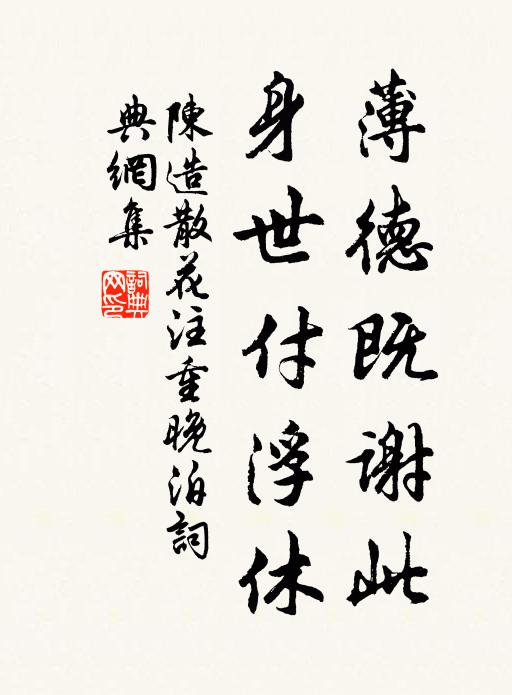 薄德既谢此
身世付浮休
陳造散花注重晚泊詞
典網集
詞典网印